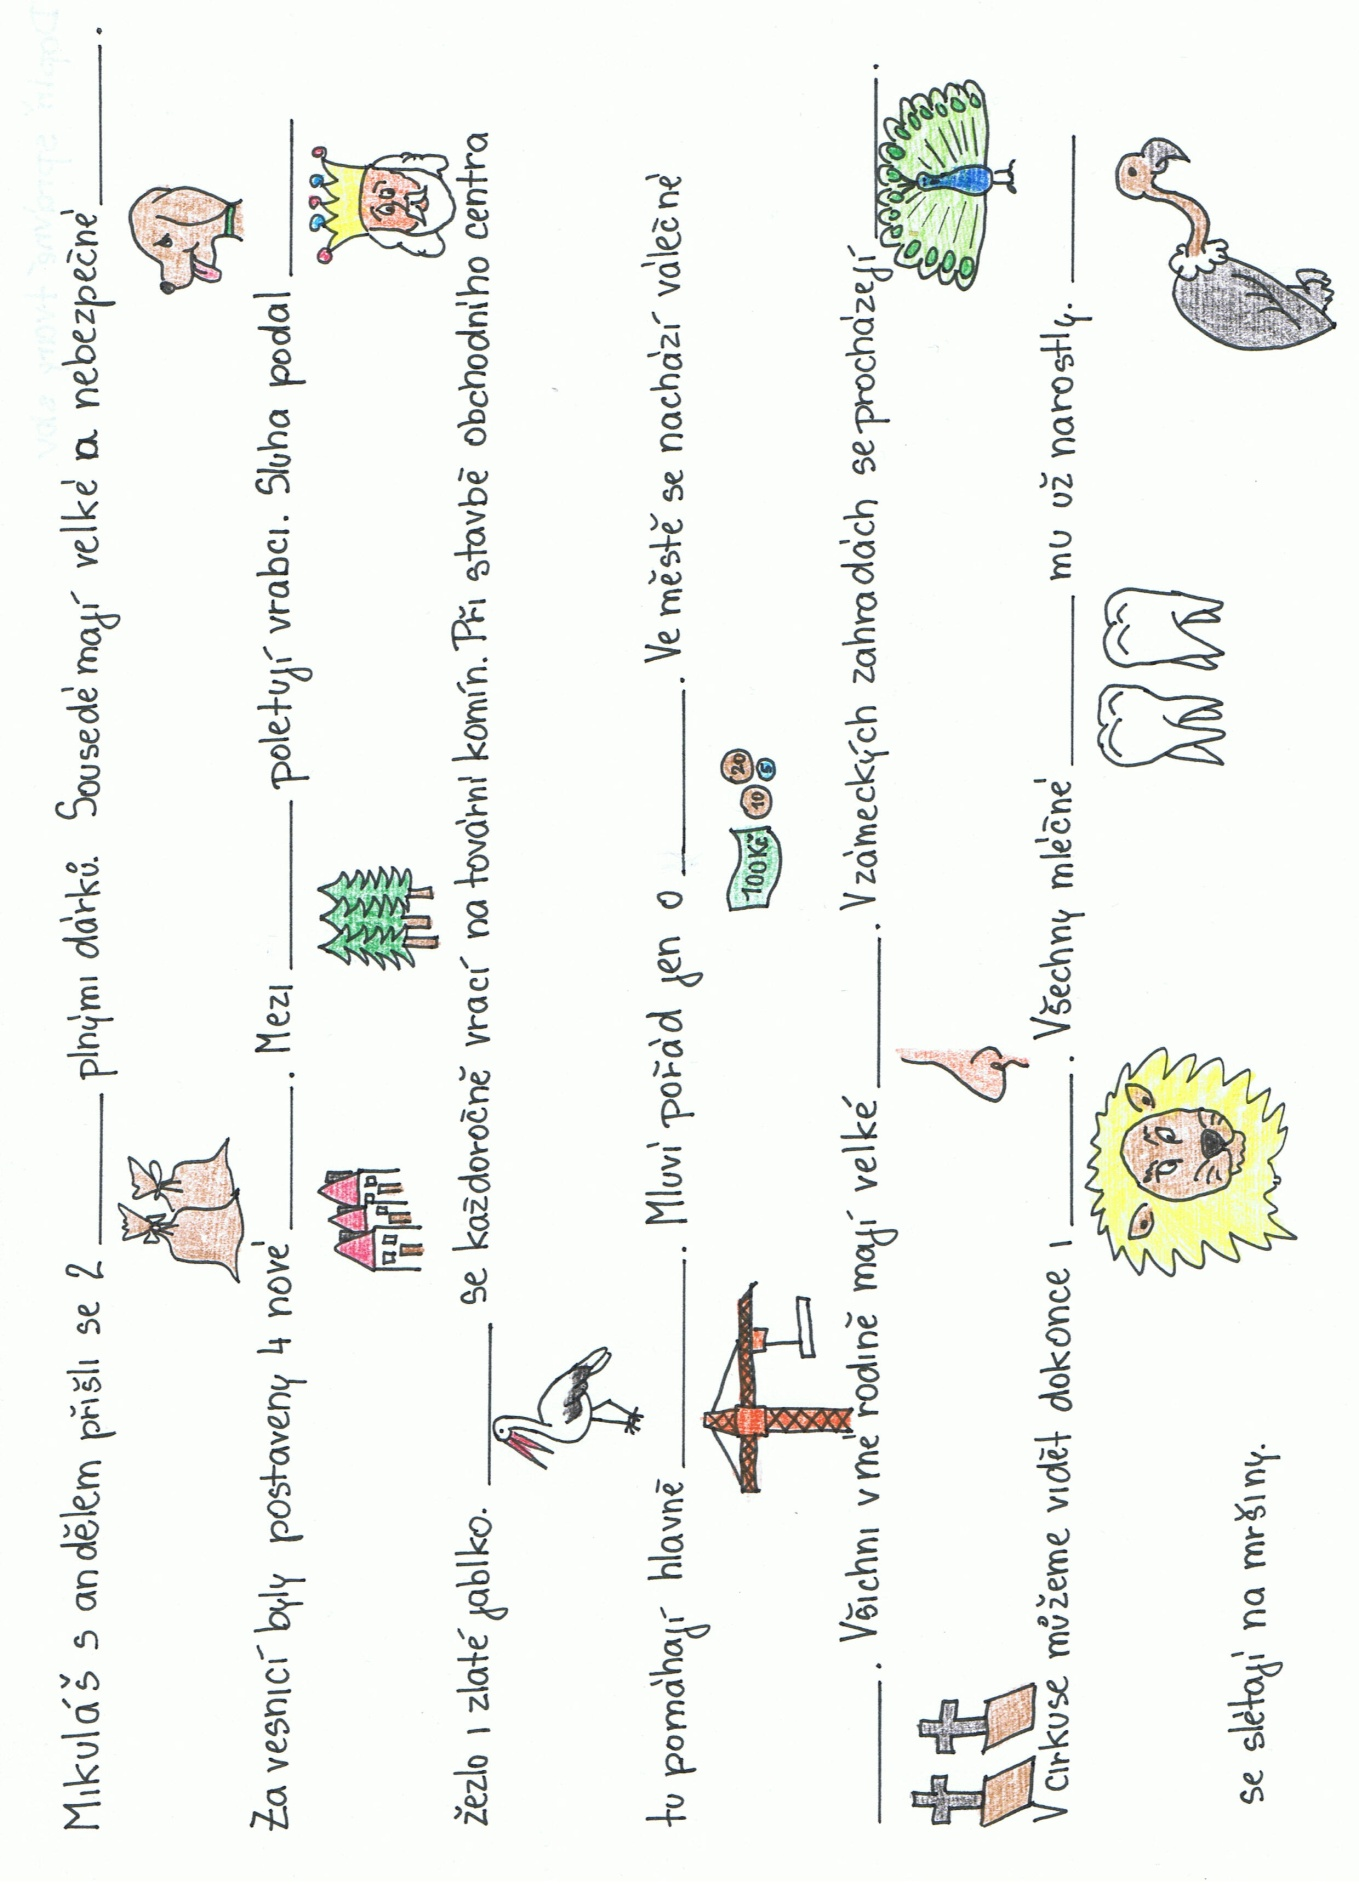 Mikuláš s andělem přišli se 2 ______ plnými dárků. Sousedé mají velké a nebezpečné ______.
Za vesnicí byly postaveny 4 nové ______. Mezi ______ poletují vrabci. Sluha podal ______
žezlo i zlaté jablko. ______ se každoročně vrací na tovární komín. Při stavbě obchodního centra
tu pomáhají hlavně ______. Mluví pořád jen o ______. Ve městě se nachází válečné
100Kč 10 20 5
______. Všichni v mé rodině mají velké ______. V zámeckých zahradách se procházejí ______.
V cirkuse můžeme vidět dokonce i ______. Všechny mléčné ______ mu už narostly. ______
se slétají na mršiny.